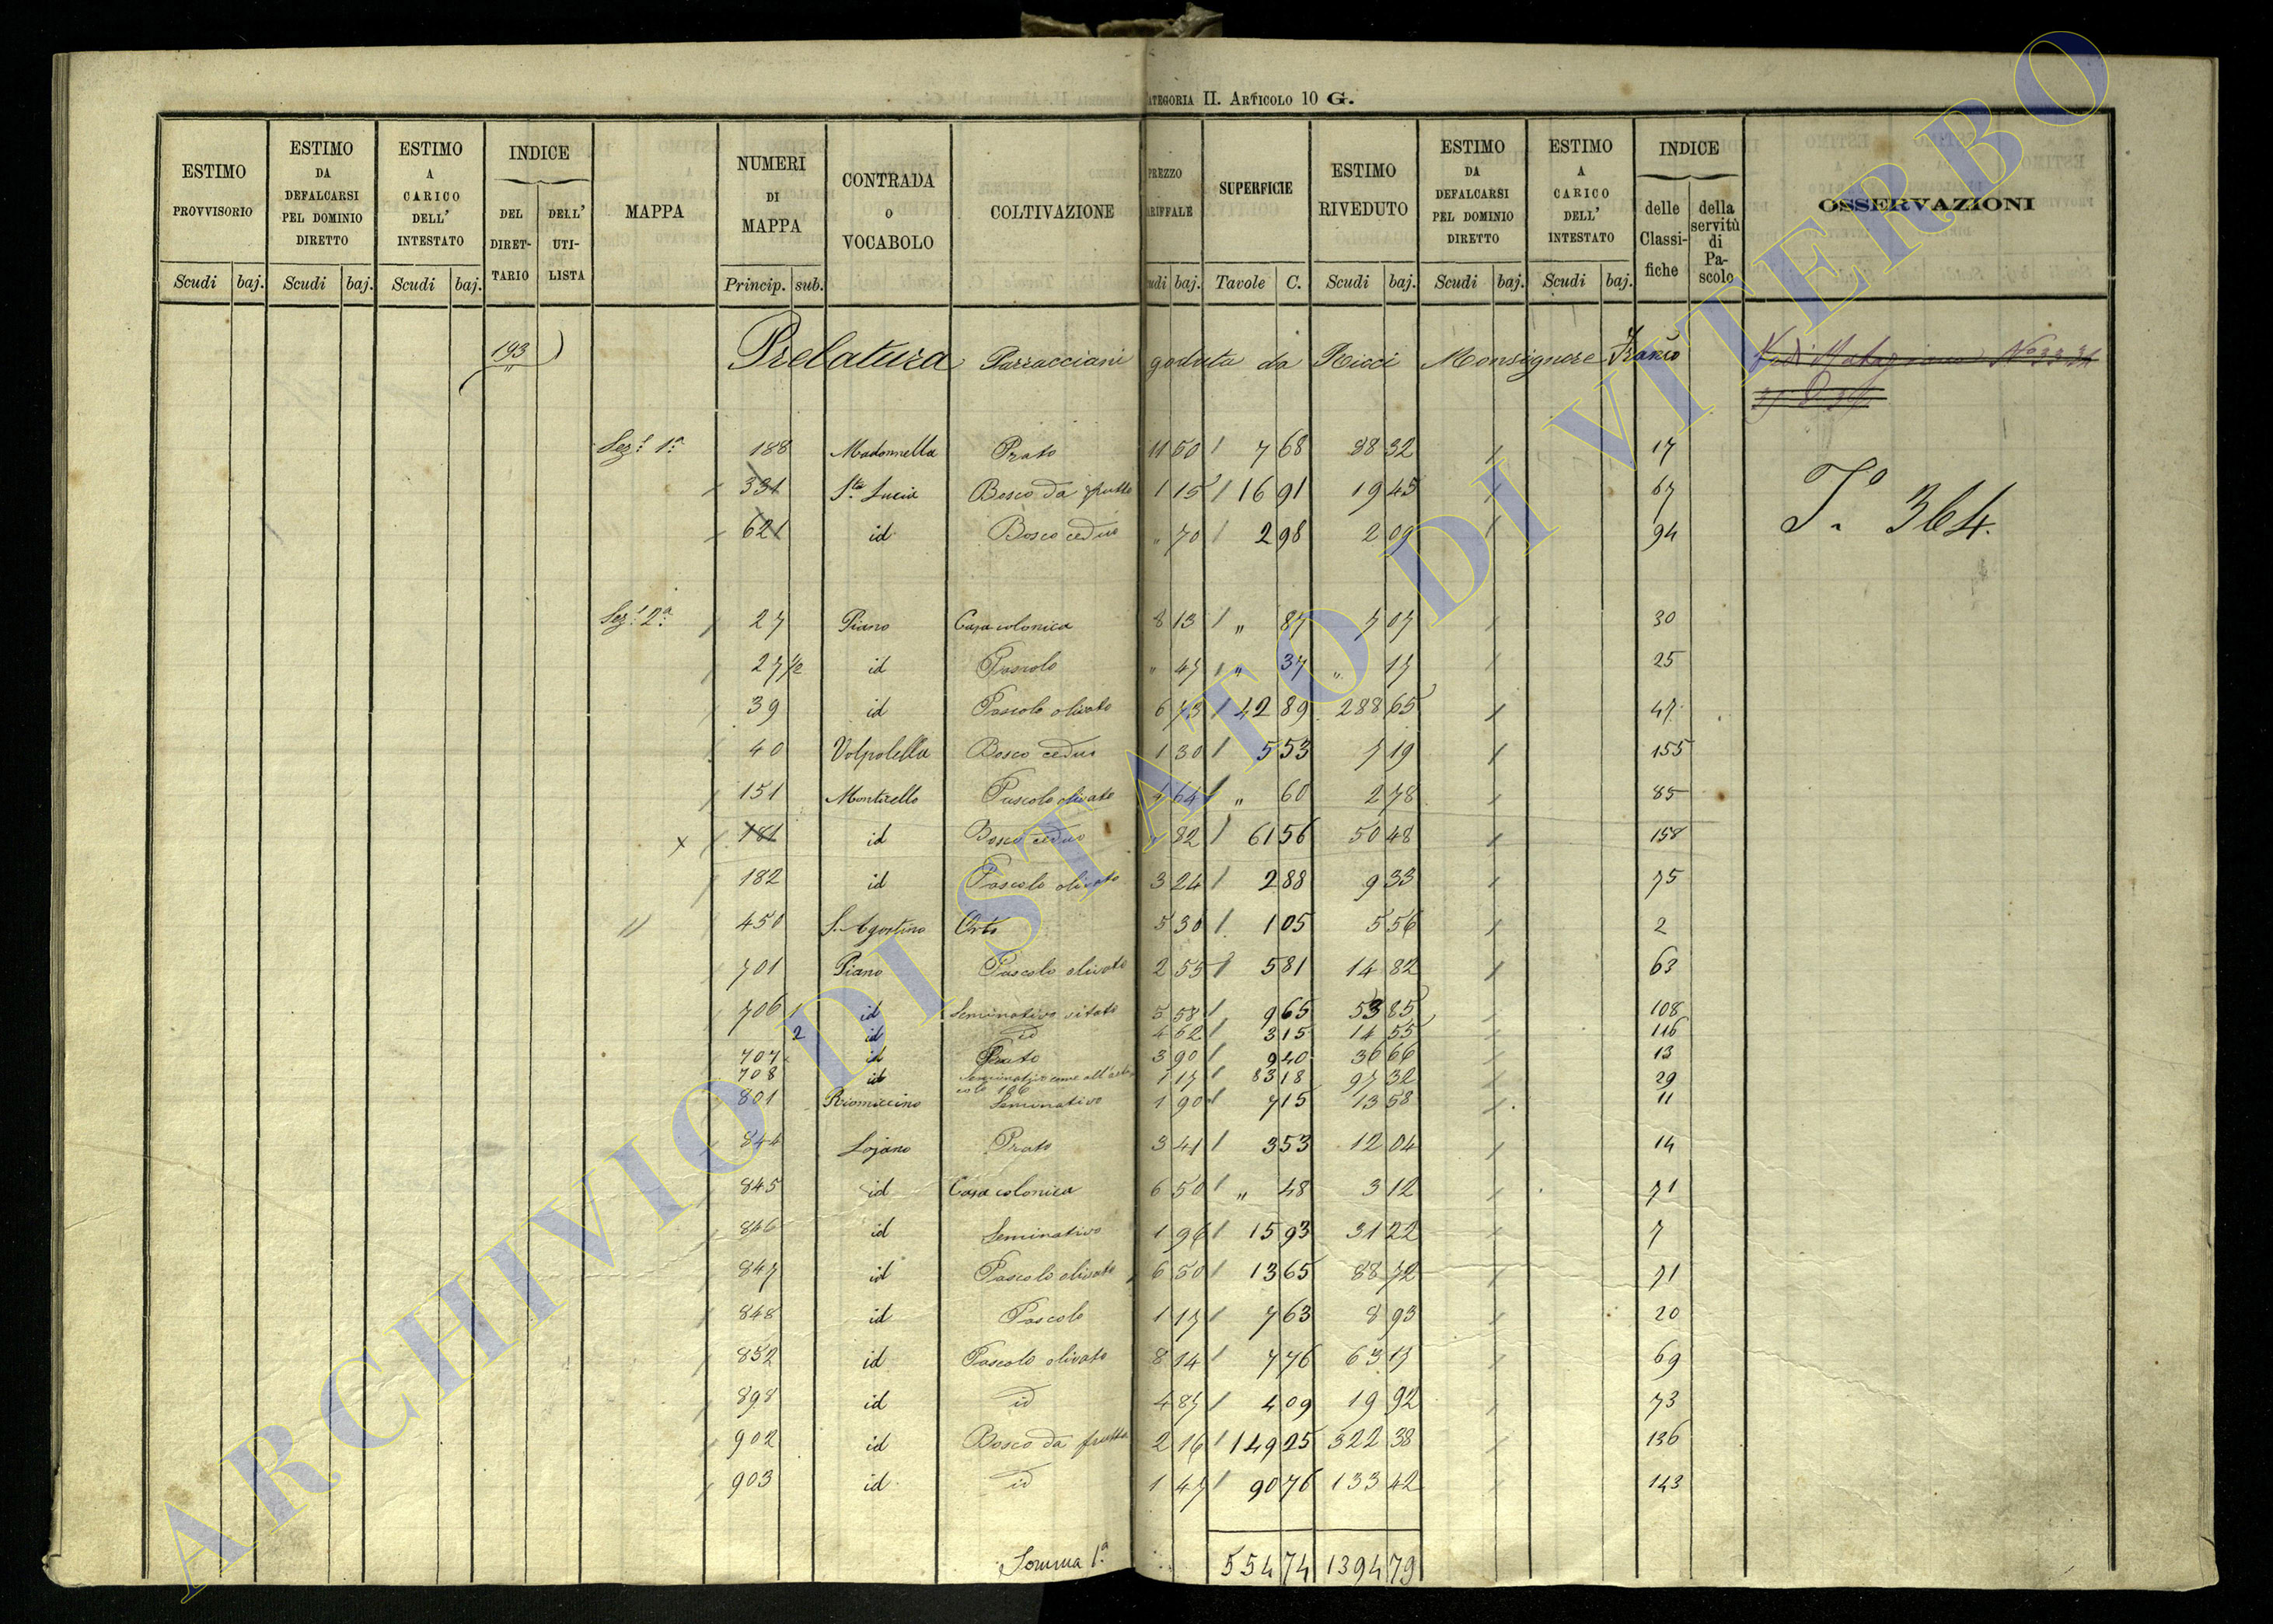 ATEGORIA II. ARTICOLO 10 G.
ESTIMO PROVVISORIO Scudi baj.
ESTIMO DA DEFALCARSI PEL DOMINIO DIRETTO Scudi baj.
ESTIMO A CARICO DELL' INTESTATO Scudi baj.
INDICE DEL DIRET-TARIO DELL' UTI-LISTA
MAPPA
NUMERI DI MAPPA Princip. sub.
CONTRADA O VOCABOLO
COLTIVAZIONE
PREZZO ARIFFALE udi baj.
SUPERFICIE Tavole C.
ESTIMO RIVEDUTO Scudi baj.
ESTIMO DA DEFALCARSI PEL DOMINIO DIRETTO Scudi baj.
ESTIMO A CARICO DELL' INTESTATO Scudi baj.
INDICE delle Classi-fiche della servitù di Pa-scolo
OSSERVAZIONI
193 Prelatura Parracciani goduta da Ricci Monsignore Franco
Sez: 1ª 188 Madonnella Prato 11 50 7 68 88 32 17
331 Sta Lucia Bosco da frutto 1 15 16 91 19 45 67
To 364.
621 id Bosco ceduo " 70 2 98 2 09 94
Sez: 2ª 27 Piano Casa colonica 8 13 " 87 7 07 30
27 1/2 id Pascolo " 47 " 37 " 17 25
39 id Pascolo olivato 6 73 42 89 288 65 47
40 Volpolella Bosco ceduo 1 30 5 53 7 19 155
151 Monticello Pascolo olivato 4 64 " 60 2 78 85
x 181 id Bosco ceduo " 82 61 56 50 48 158
182 id Pascolo olivato 3 24 2 88 9 33 75
" 450 S. Agostino Orto 5 30 1 05 5 56 2
701 Piano Pascolo olivato 2 55 5 81 14 82 63
706 1 id Seminativo vitato 5 58 9 65 53 85 108
2 id id 4 62 3 15 14 55 116
707 id Prato 3 90 9 40 36 66 13
708 id Seminativo come all'arti-colo 106 1 17 83 18 97 32 29
801 Riomiccino Seminativo 1 90 7 15 13 58 11
844 Lojano Prato 3 41 3 53 12 04 14
845 id Casa colonica 6 50 " 48 3 12 71
846 id Seminativo 1 96 15 93 31 22 7
847 id Pascolo olivato 6 50 13 65 88 72 71
848 id Pascolo 1 17 7 63 8 93 20
852 id Pascolo olivato 8 14 7 76 63 17 69
898 id id 4 87 4 09 19 92 73
902 id Bosco da frutto 2 16 149 25 322 38 136
903 id id 1 47 90 76 133 42 143
Somma 1ª 554 74 1394 79
ARCHIVIO DI STATO DI VITERBO